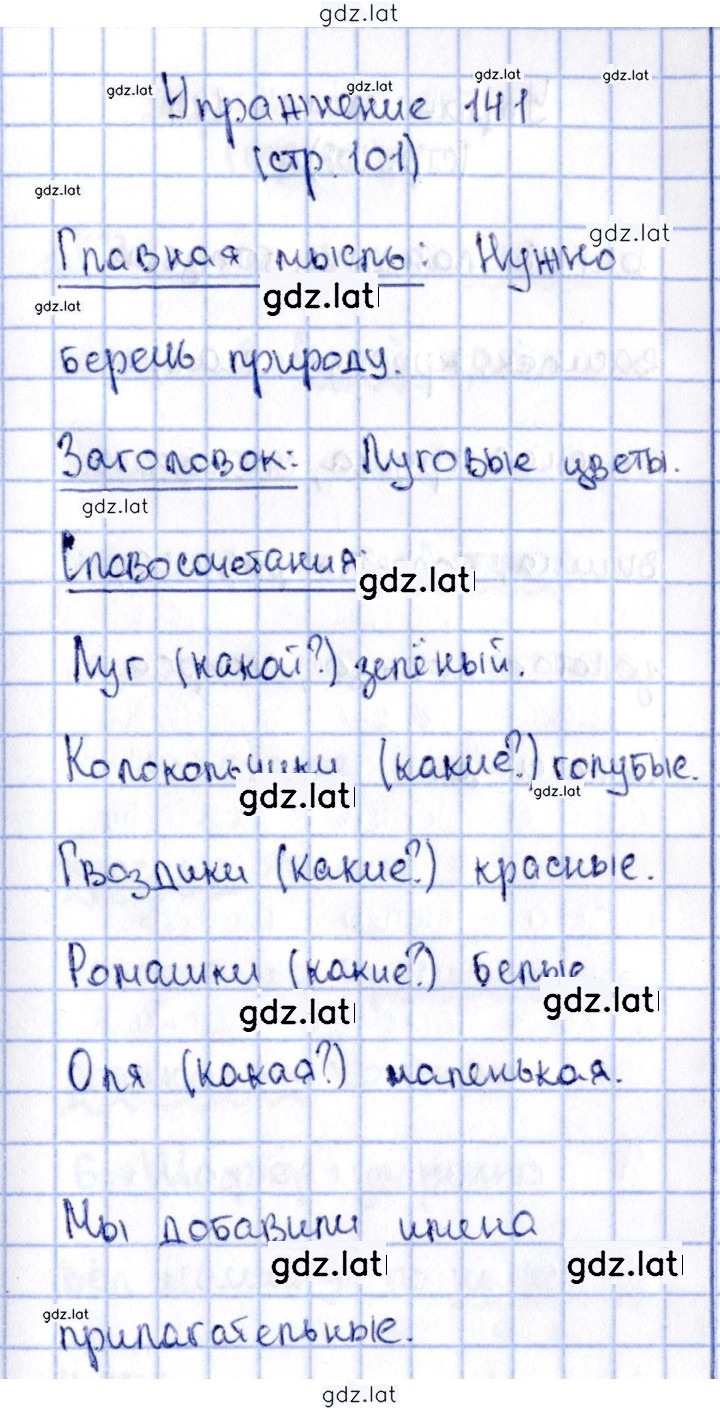 gdz.lat
gdz.lat gdz.lat gdz.lat gdz.lat
Упражнение 141
(стр. 101)
gdz.lat
gdz.lat
Главная мысль: Нужно
gdz.lat
gdz.lat
беречь природу.
Заголовок: Луговые цветы.
gdz.lat
Словосочетания:
gdz.lat
Луг (какой?) зелёный.
Колокольчики (какие?) голубые.
gdz.lat gdz.lat
Гвоздики (какие?) красные.
Ромашки (какие?) белые
gdz.lat gdz.lat
Оля (какая?) маленькая.
Мы добавили имена
gdz.lat gdz.lat
gdz.lat
прилагательные.
gdz.lat